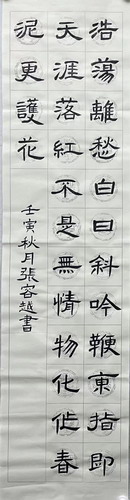 浩蕩離愁白日斜吟鞭東指即
天涯落紅不是無情物化作春
泥更護花
壬寅秋月張容越書